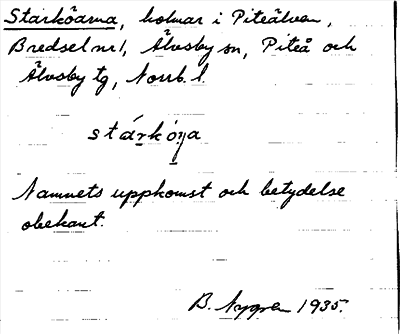 Starköarna, holmar i Piteälven,
Bredsel nr 1, Älvsby sn, Piteå och
Älvsby tg, Norrb. l.
stárkóṇa
Namnets uppkomst och betydelse
obekant.
B. Nygren 1935.